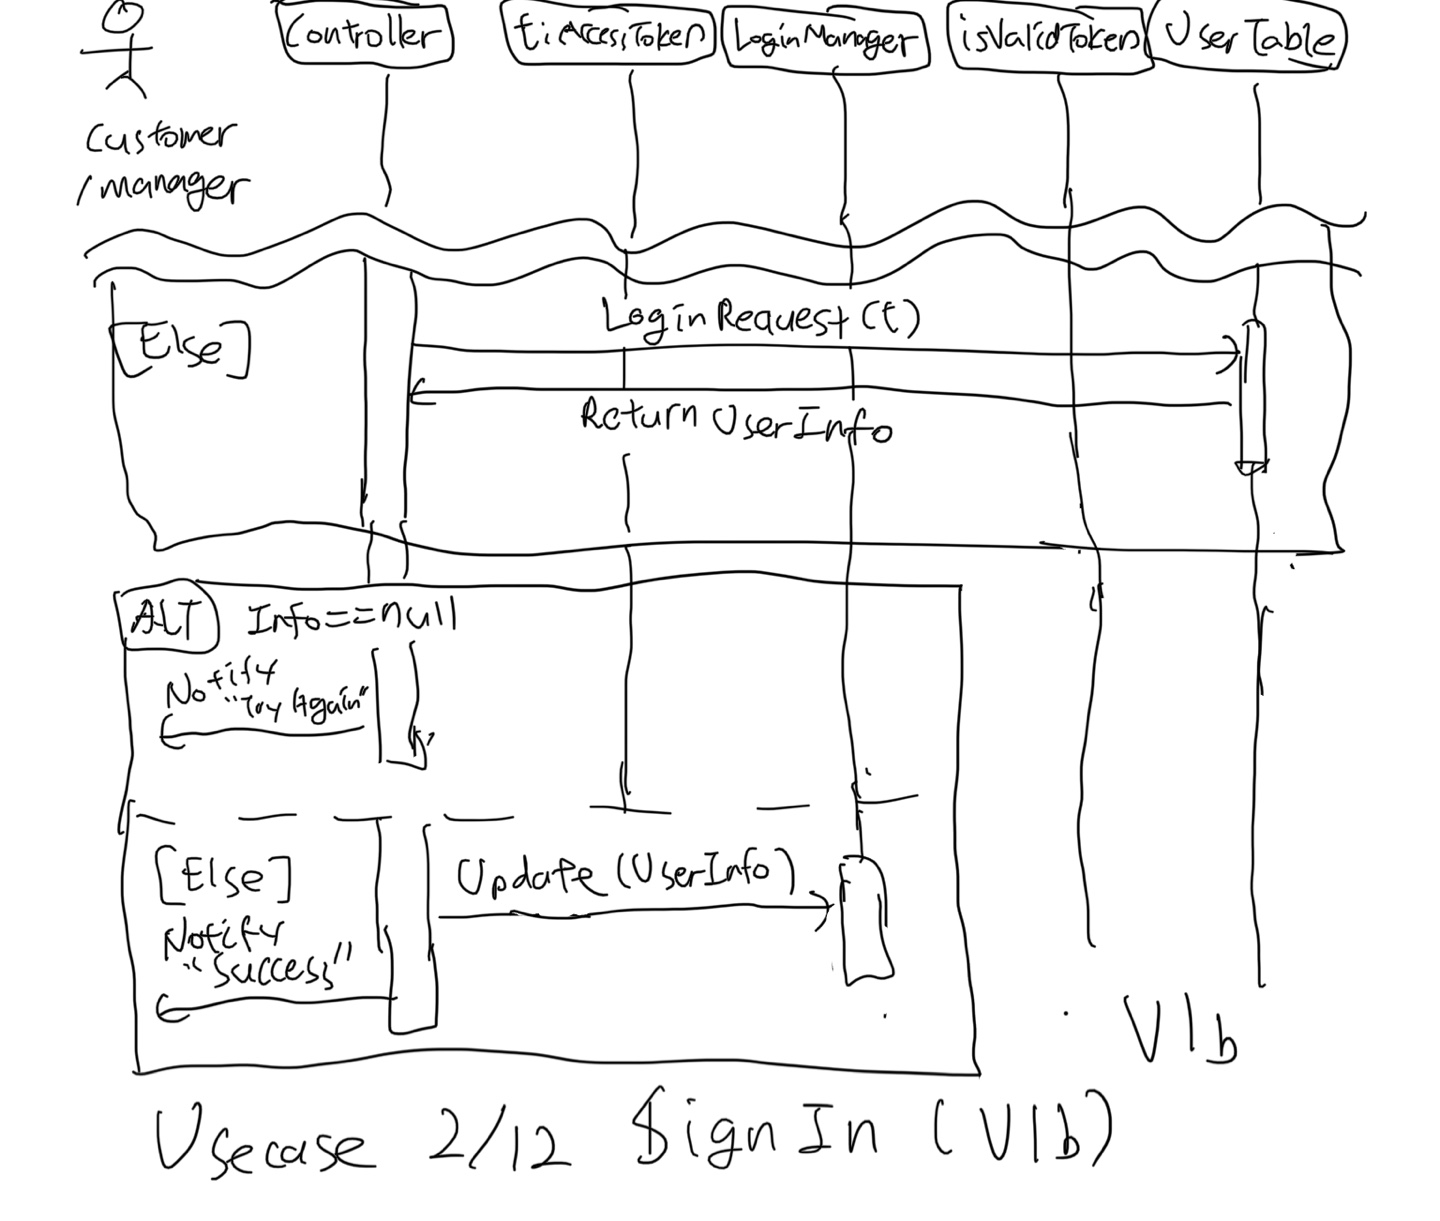 Controller
t: AccessToken
LoginManager
isValidToken
UserTable
Customer
/manager
[Else]
LoginRequest (t)
Return UserInfo
ALT
Info==null
Notify
"Try Again"
[Else]
Update (UserInfo)
Notify
"Success"
V1b
Usecase 2/12 SignIn (V1b)